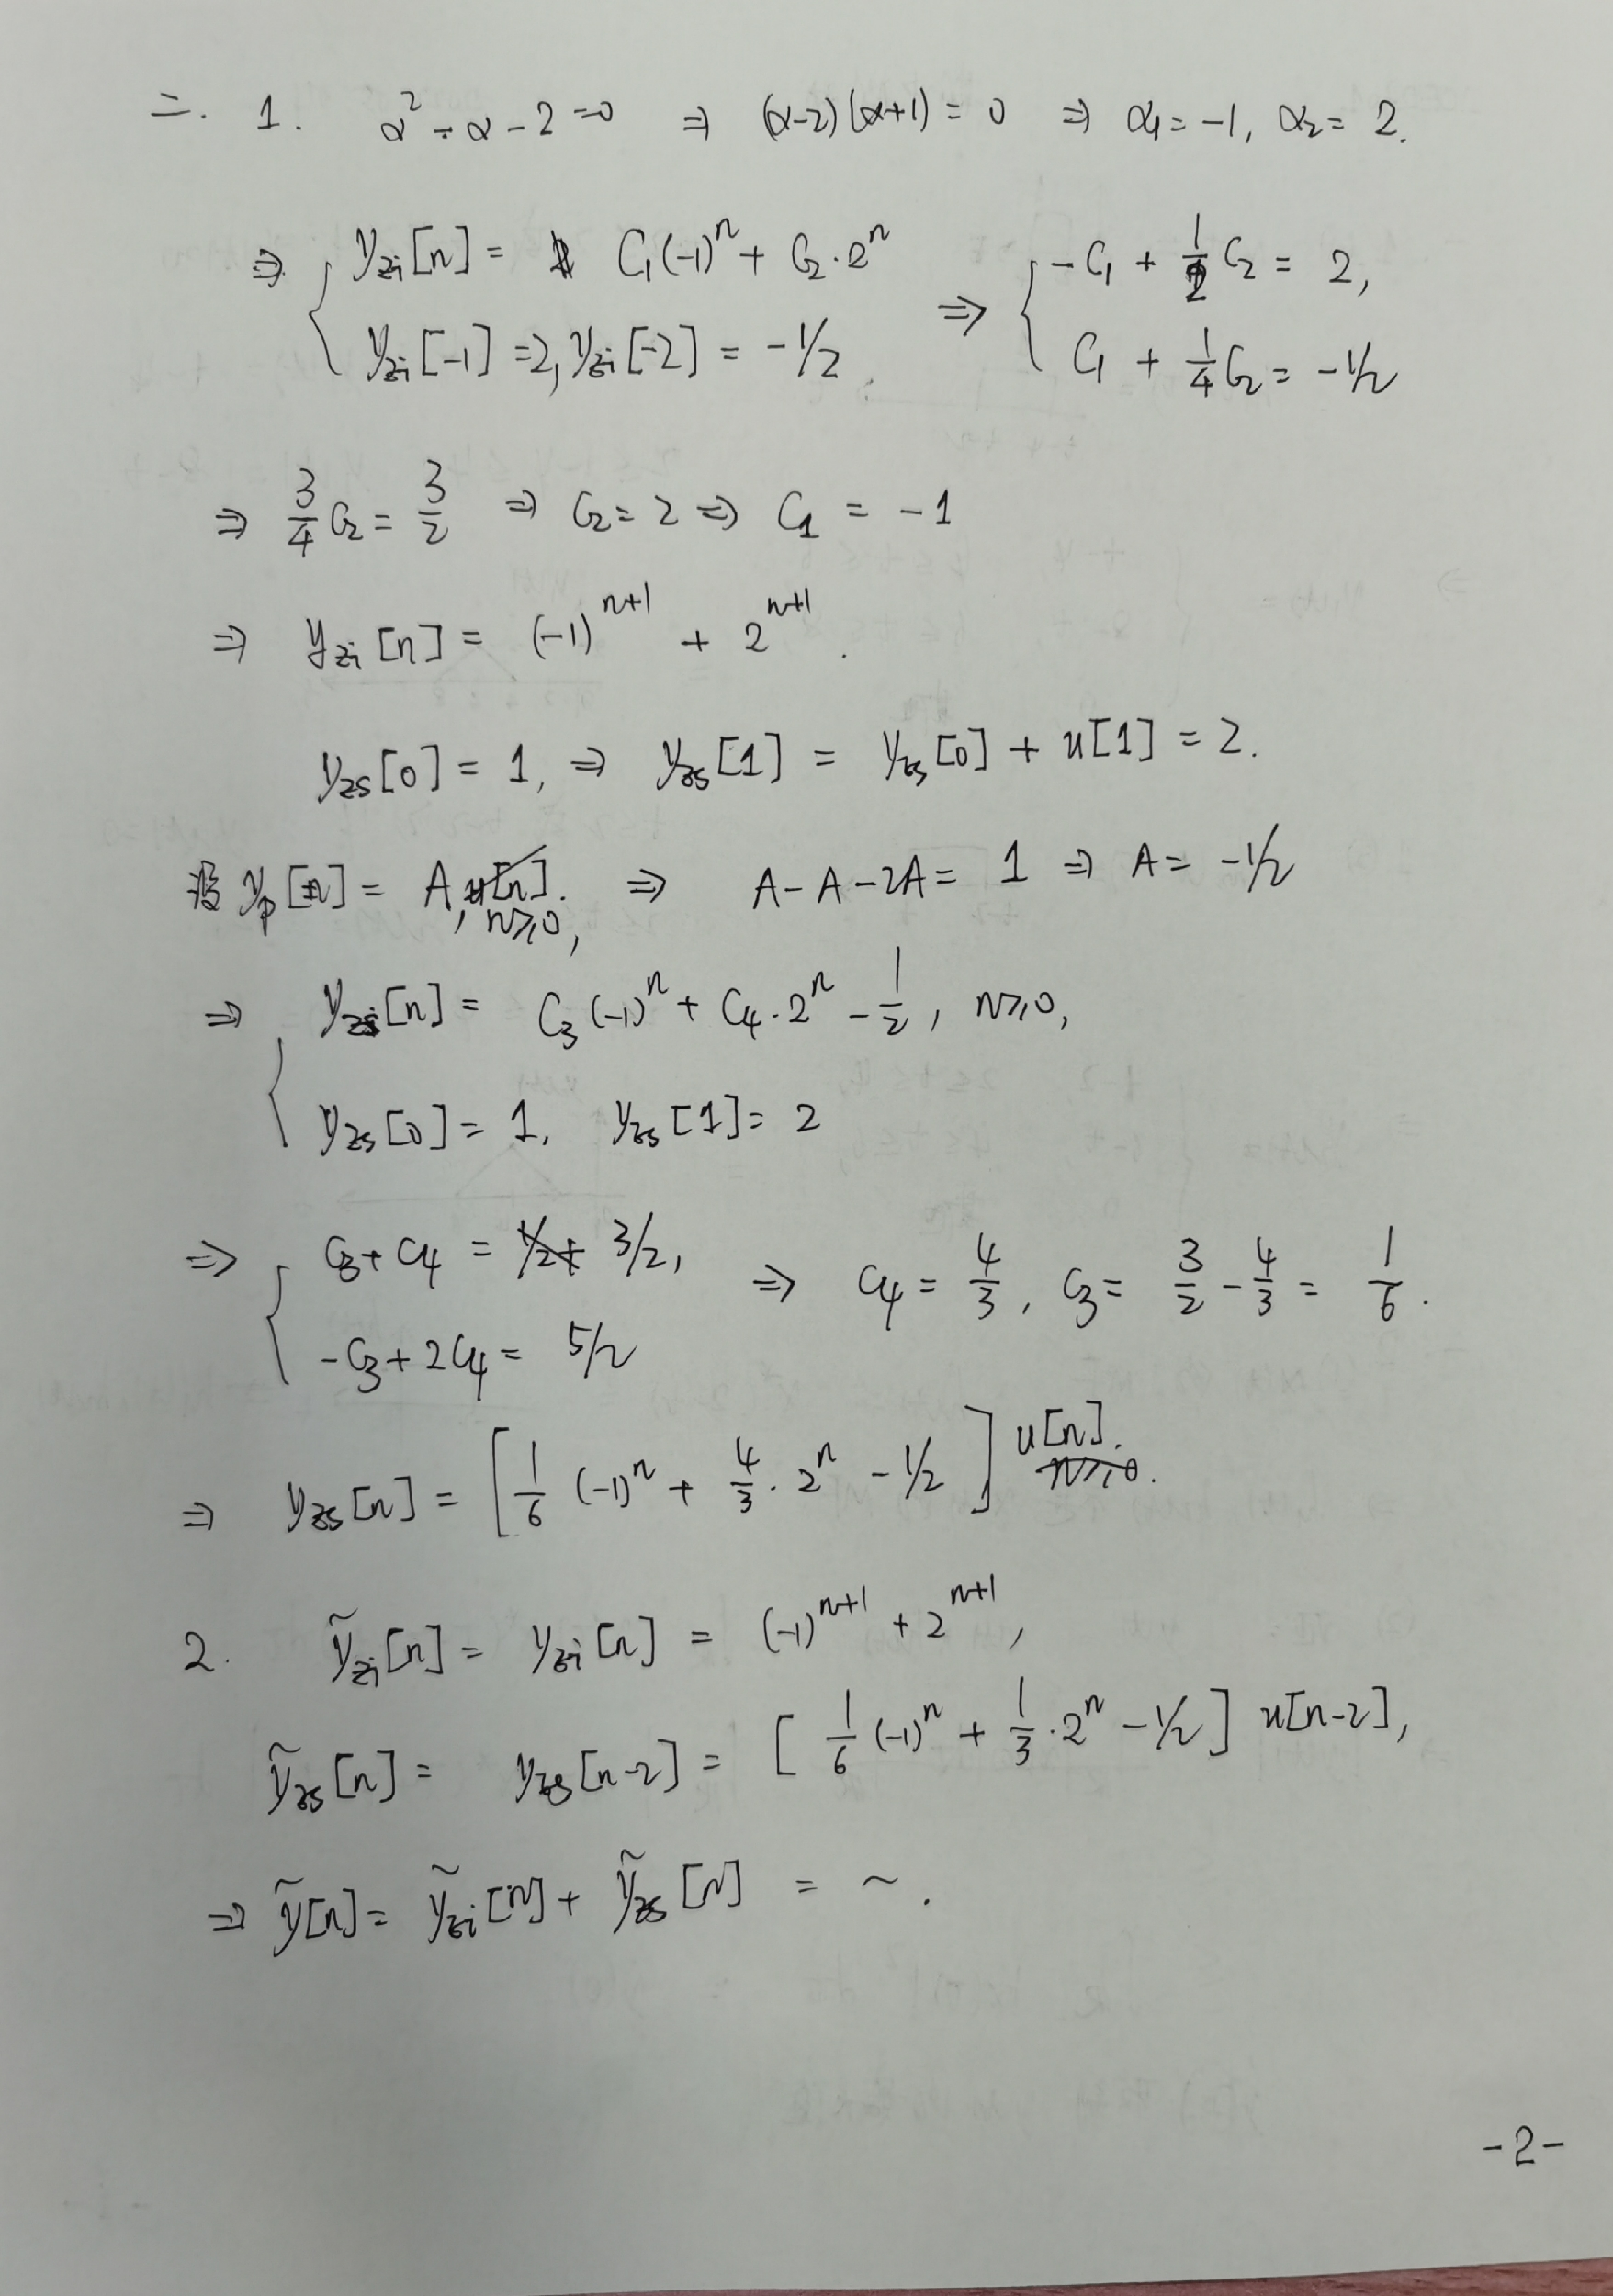 二. 1. α² - α - 2 = 0 ⇒ (α-2)(α+1) = 0 ⇒ α₁ = -1, α₂ = 2.
⇒ { y_zi[n] = C₁(-1)^n + C₂·2^n ⇒ { -C₁ + 1/2 C₂ = 2,
y_zi[-1] = 2, y_zi[-2] = -1/2. C₁ + 1/4 C₂ = -1/2
⇒ 3/4 C₂ = 3/2 ⇒ C₂ = 2 ⇒ C₁ = -1
⇒ y_zi[n] = (-1)^{n+1} + 2^{n+1}.
y_zs[0] = 1, ⇒ y_zs[1] = y_zs[0] + u[1] = 2.
设 y_p[n] = A, n≥0, ⇒ A - A - 2A = 1 ⇒ A = -1/2
⇒ { y_zs[n] = C₃(-1)^n + C₄·2^n - 1/2, n≥0,
y_zs[0] = 1, y_zs[1] = 2
⇒ { C₃ + C₄ = 3/2, ⇒ C₄ = 4/3, C₃ = 3/2 - 4/3 = 1/6.
-C₃ + 2C₄ = 5/2
⇒ y_zs[n] = [1/6 (-1)^n + 4/3·2^n - 1/2] u[n].
2. ỹ_zi[n] = y_zi[n] = (-1)^{n+1} + 2^{n+1},
ỹ_zs[n] = y_zs[n-2] = [1/6 (-1)^n + 1/3·2^n - 1/2] u[n-2],
⇒ ỹ[n] = ỹ_zi[n] + ỹ_zs[n] = ~.
-2-